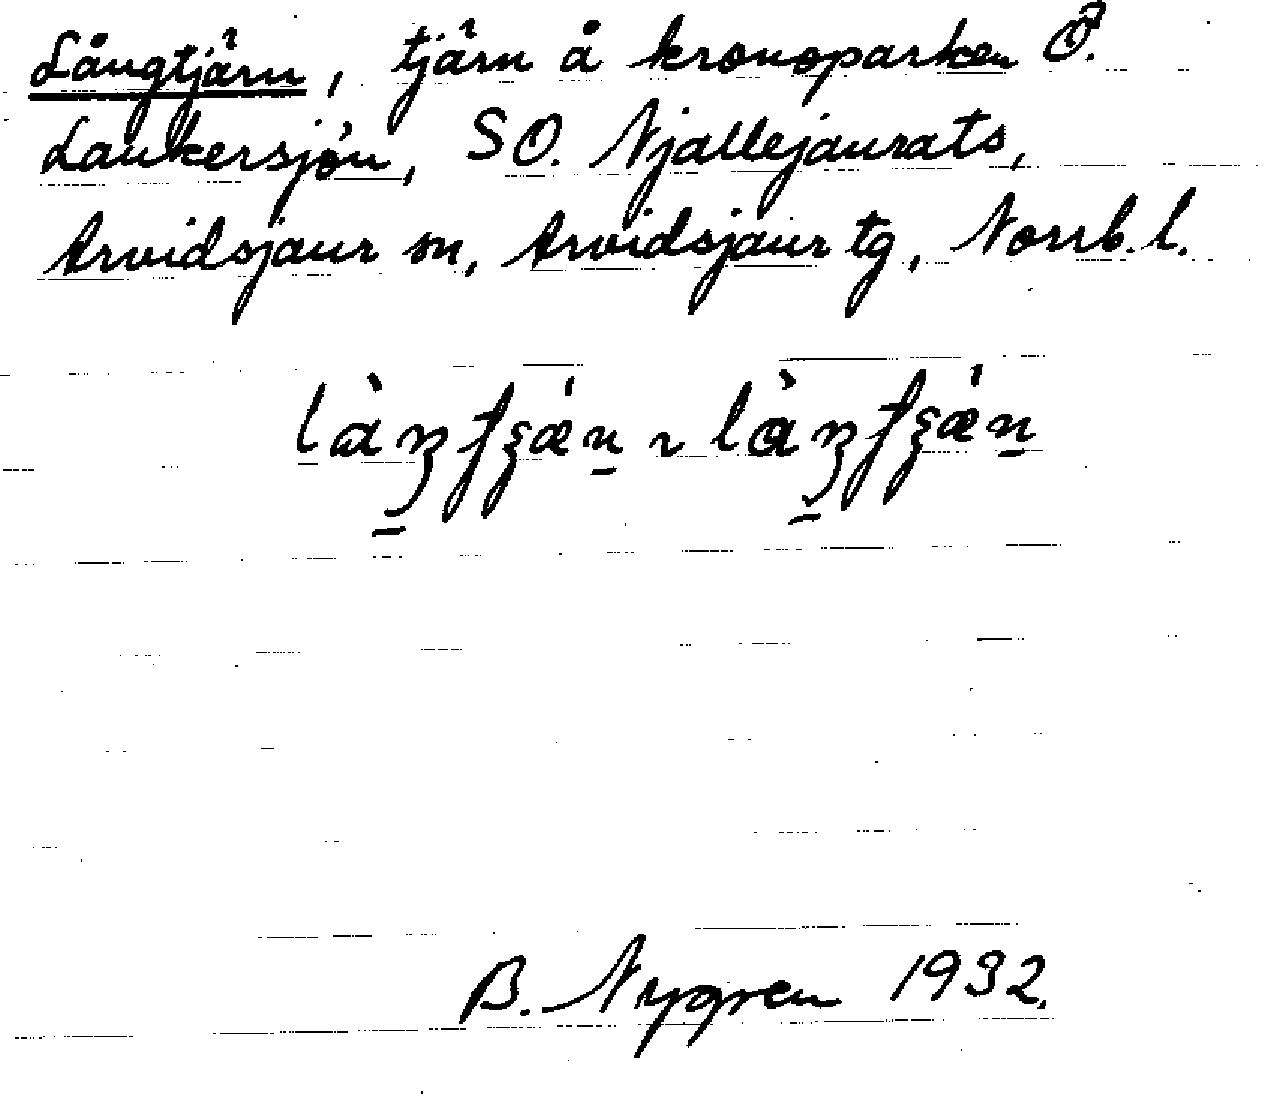 Långtjärn, tjärn å kronoparken Ö.
Laukersjön, SO. Njallejaurats,
Arvidsjaur sn, Arvidsjaur tg, Norrb. l.
B. Nygren 1932.